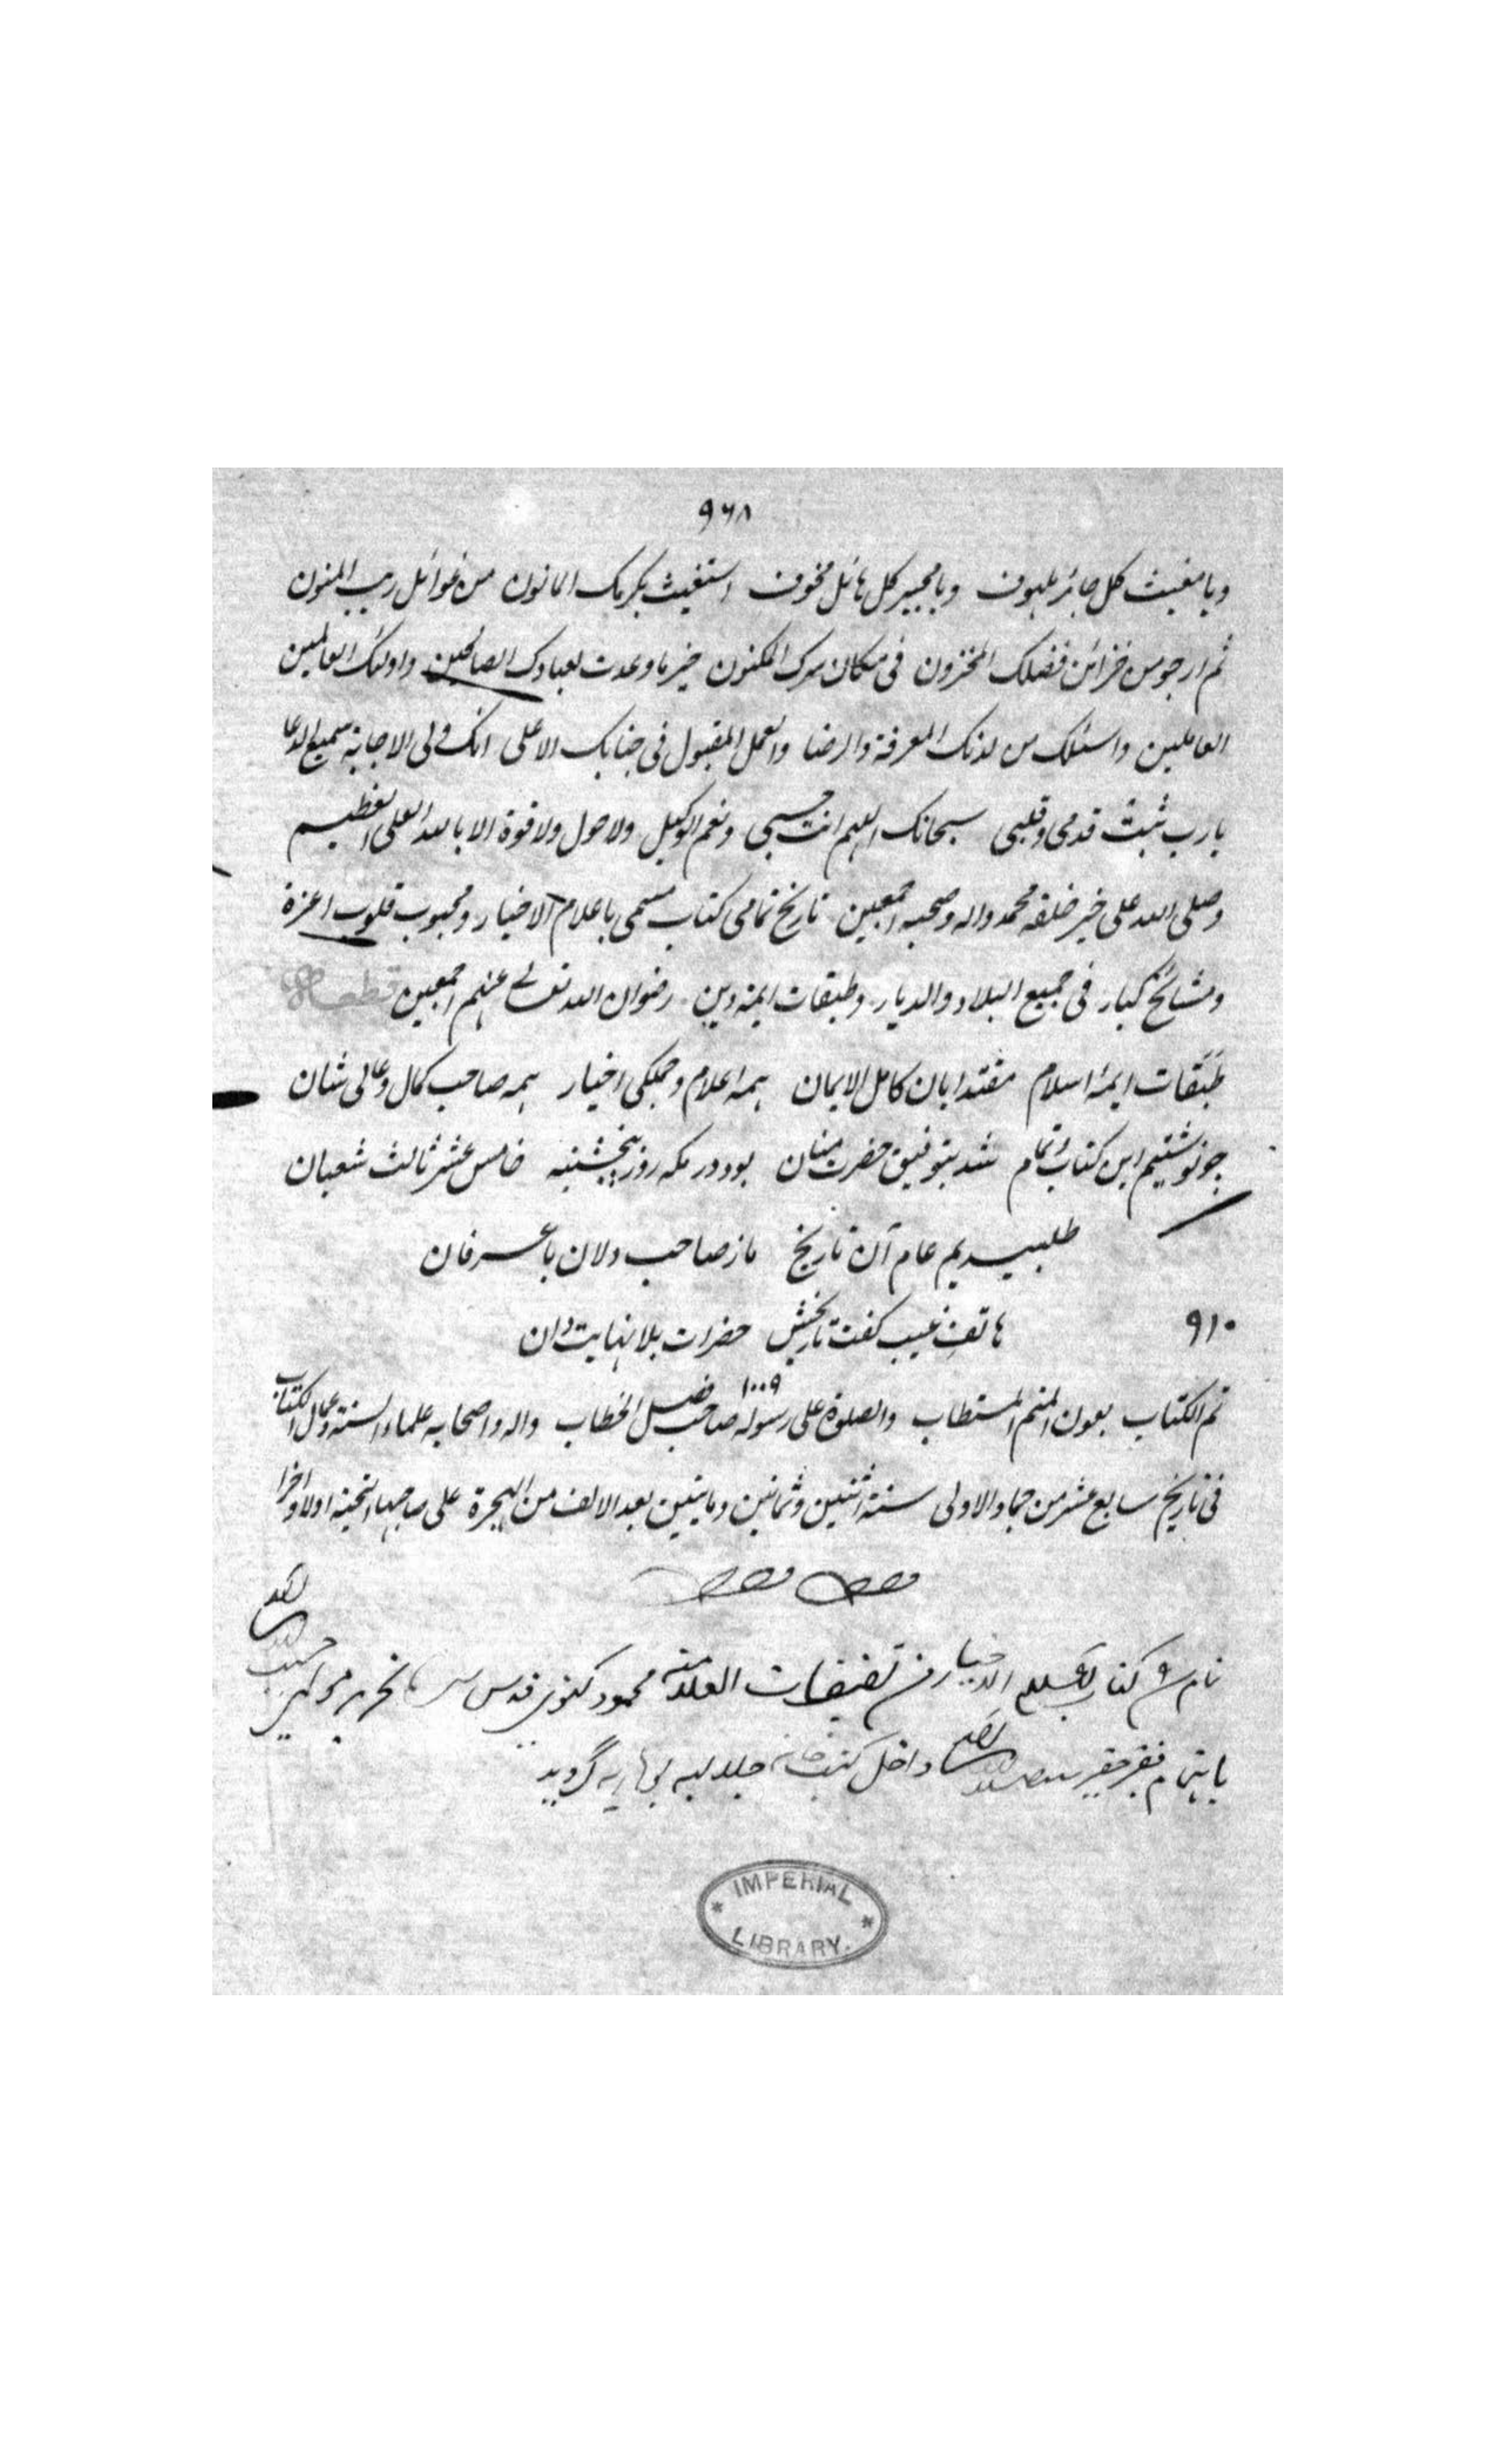 ۹۶۸
ویا مغیث کل جائر ملهوف ویا مجیر کل هائل مخوف استغیث بکرمک المانون من غوائل ریب المنون
ثم ارجو من خزائن فضلک المخزون فی مکان سرک المکنون خیر ما وعدت لعبادک الصالحین واولئک العالمین
العاملین واسئلک من لدنک المعرفة والرضا والعمل المقبول فی جنابک الاعلی انک ولی الاجابة سمیع الدعا
یا رب ثبت قدمی وقلبی سبحانک اللهم انت حسبی ونعم الوکیل ولا حول ولا قوة الا بالله العلی العظیم
وصلی الله علی خیر خلقه محمد واله وصحبه اجمعین تاریخ تمامی کتاب مسمی باعلام الاخیار ومحبوب قلوب اعزة
ومشائخ کبار فی جمیع البلاد والدیار وطبقات ایمه دین رضوان الله تعالی عنهم اجمعین قطعه
طبقات ایمۂ اسلام مقتدایان کامل الایمان همه اعلام وجملکی اخیار همه صاحب کمال وعالی شان
چو نوشتیم این کتاب تمام شد بتوفیق حضرت منان بود در مکه روز پنجشنبه خامس عشر ثالث شعبان
طلبیدیم عام آن تاریخ ما ز صاحب دلان با عرفان
هاتف غیب کفت تاریخش حضرات بلا نهایت دان ۹۱۰
۱۰۰۹
تم الکتاب بعون المنعم المستطاب والصلوة علی رسوله صاحب فصل الخطاب واله واصحابه علماء السنة وعمال الکتاب
فی تاریخ سابع عشر من جماد الاولی سنة اثنین وثمانین ومایتین بعد الالف من الهجرة علی صاحبها التحیة اولا واخرا
نام کتاب الاخیار من تصنیفات العلامة محمود کفوی قدس سره
باهتمام فقیر حقیر داخل کتب خانه جلالیه بوهاریه گردید
IMPERIAL
LIBRARY.